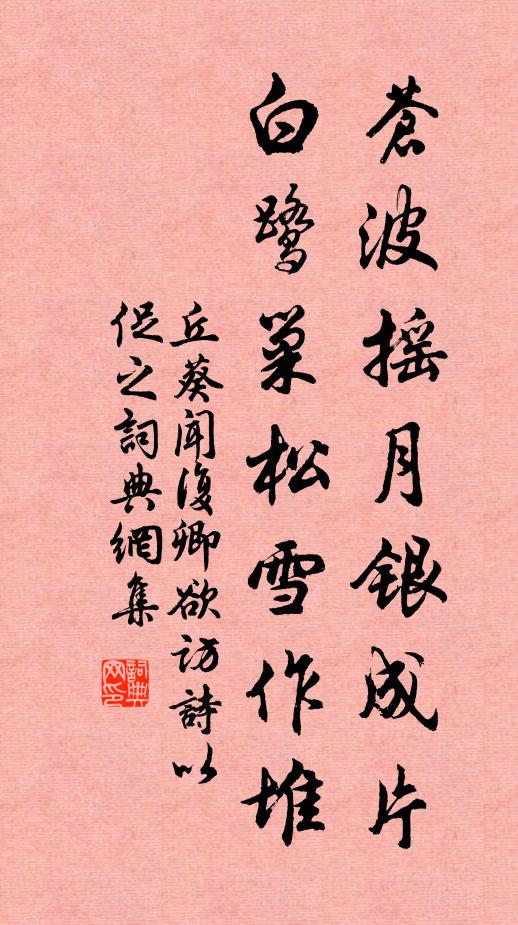 蒼波摇月銀成片
白鷺巢松雪作堆
丘葵闻復卿欲訪詩以
促之詞典網集
詞典网印